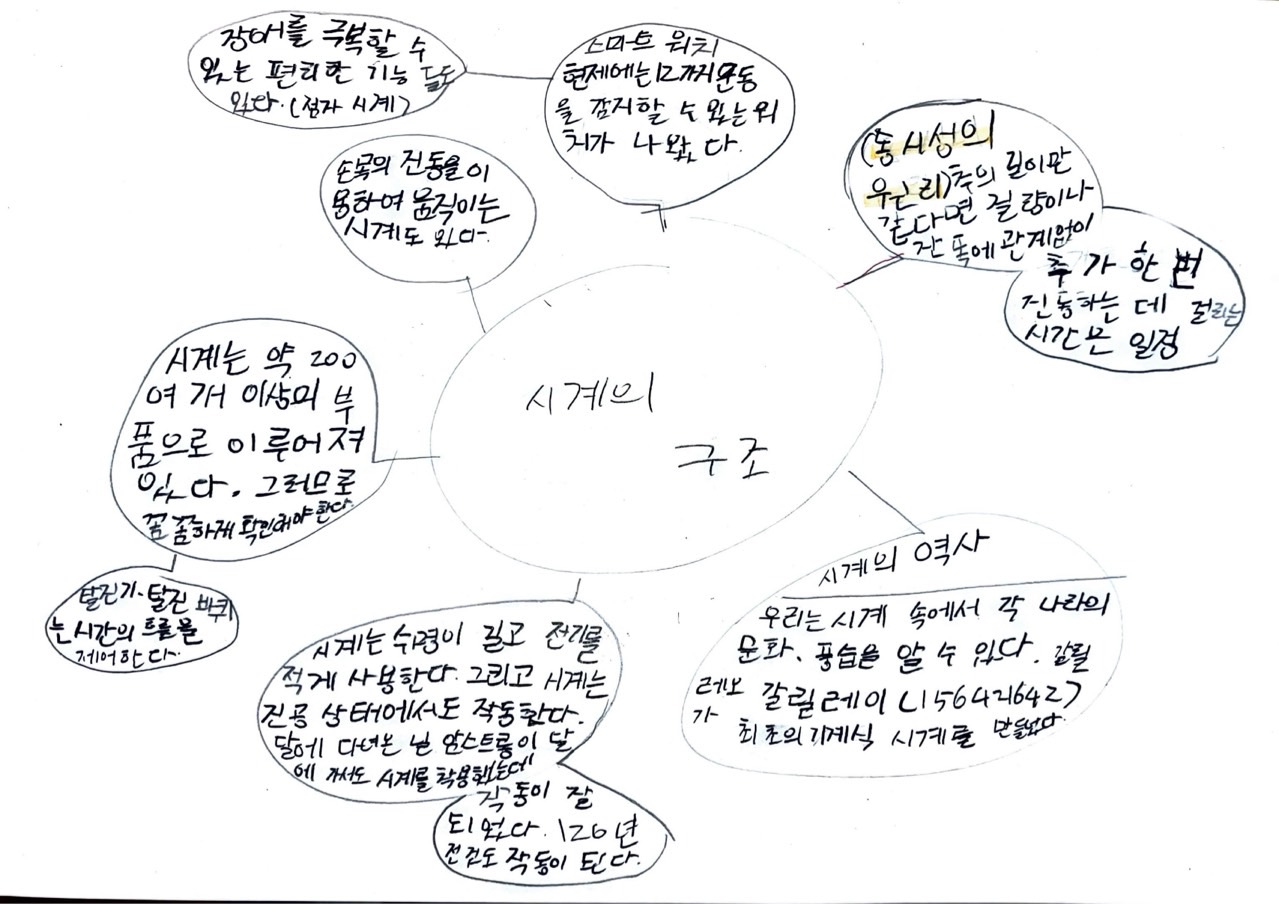 시계의
구조
스마트 워치
현제에는 12까지 운동
을 감지할 수 있는 워
치가 나왔다.
장애를 극복할 수
있는 편리한 기능 들도
있다. (점자 시계)
손목의 진동을 이
용하여 움직이는
시계도 있다.
시계는 약 200
여 개 이상의 부
품으로 이루어져
있다. 그러므로
꼼꼼하게 확인해야 한다.
탈진기·탈진 바퀴
는 시간의 흐름을
제어한다.
시계는 수명이 길고 전기를
적게 사용한다. 그리고 시계는
진공 상태에서도 작동한다.
달에 다녀온 닐 암스트롱이 달
에 가서도 시계를 착용했는데
작동이 잘
되었다. 126년
전 것도 작동이 된다.
시계의 역사
우리는 시계 속에서 각 나라의
문화, 풍습을 알 수 있다. 갈릴
레오 갈릴레이 (1564~1642)
가 최초의 기계식 시계를 만들었다.
(동시성의
원리) 추의 길이만
같다면 질량이나
진폭에 관계없이
추가 한 번
진동하는 데 걸리는
시간은 일정